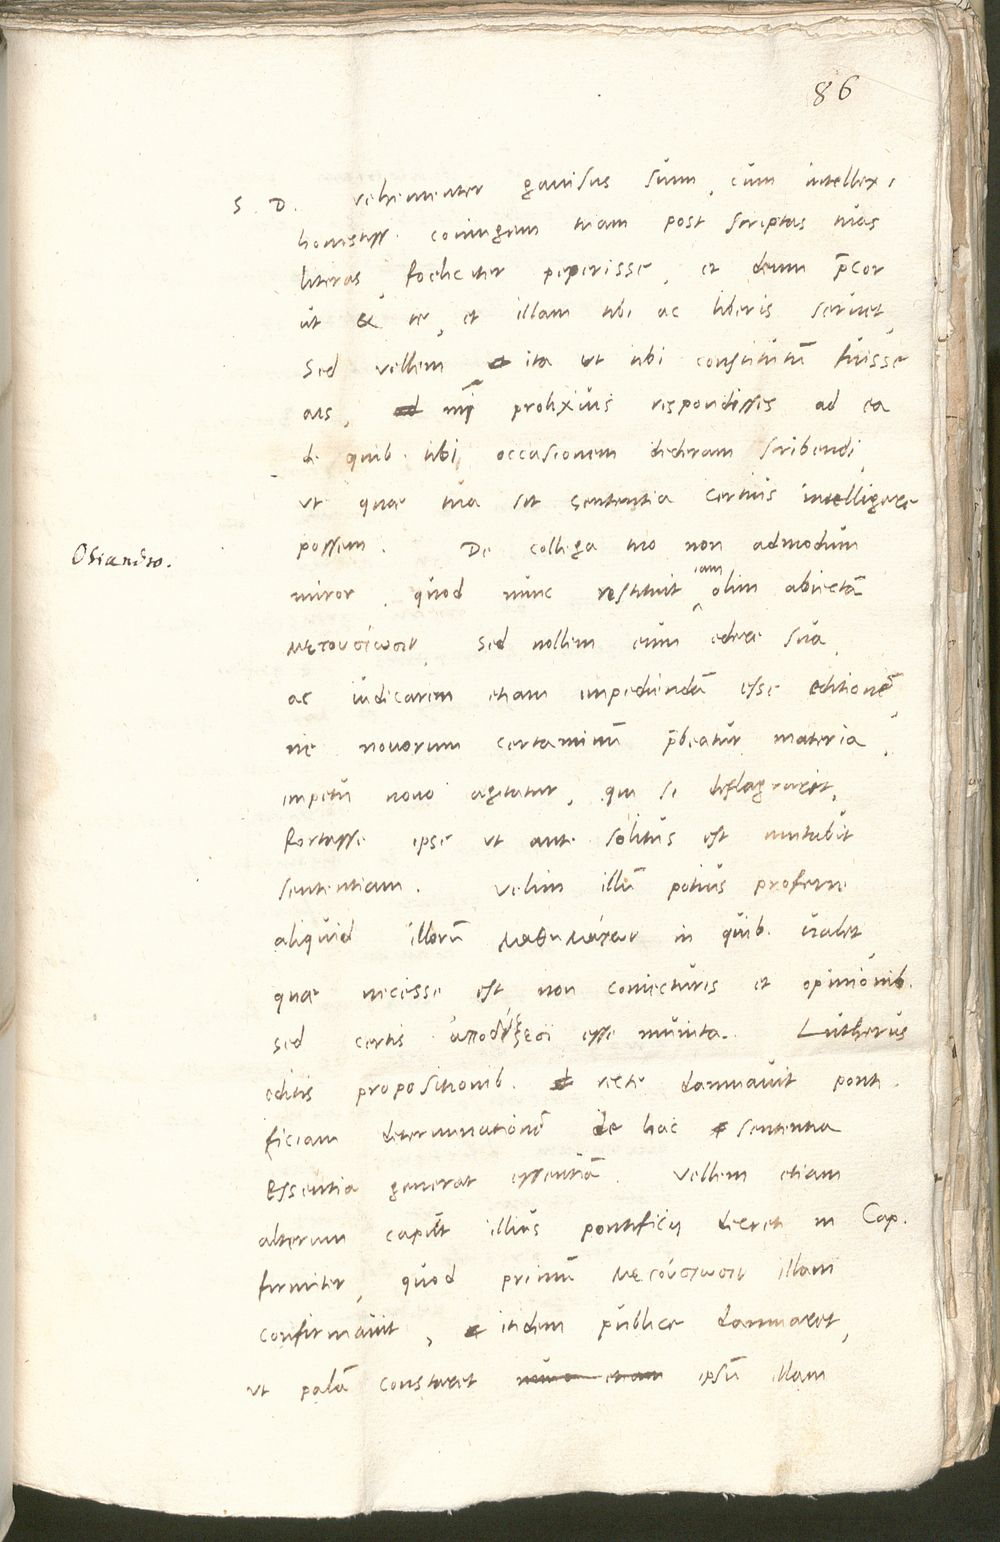 86
S. D. vehementer gauisus sum, cum intellexi
honestiss. coniugem tuam post scriptas tuas
literas foeliciter peperisse, et deum p̄cor
ut & te, et illam tibi ac liberis seruet,
Sed vellem ita ut tibi constitutū fuisse
ais, mī prolixius respondisses ad ea
de quib. tibi occasionem dederam scribendi,
ut quae tua sit sententia certius intelligere
possem. De collega tuo non admodum
Osiandro.
miror, quod nunc restituit iam olim abiectā
μετουσίωσιν, sed nollem eum edere sua,
ac iudicarem etiam impediendā esse editionē,
ne nouorum certaminū p̄beatur materia,
impetu nouo agitatur, qui si deflagrarit,
fortasse ipse ut ante solitus est mutabit
sententiam. Velim illū potius proferre
aliquid illorū μαθημάτων in quib. ualet
quae necesse est non coniecturis et opinionib.
sed certis ἀποδείξεσι esse munita. Lutherus
editis propositionib. recte damnauit ponti-
ficiam determinationē de hac sententia
Essentia generat essentiā. Vellem etiam
alterum caput illius pontificij decreti in Cap.
firmiter, quod primū μετούσιωσιν illam
confirmauit, itidem publice damnaret,
ut palā constaret ipsū illam